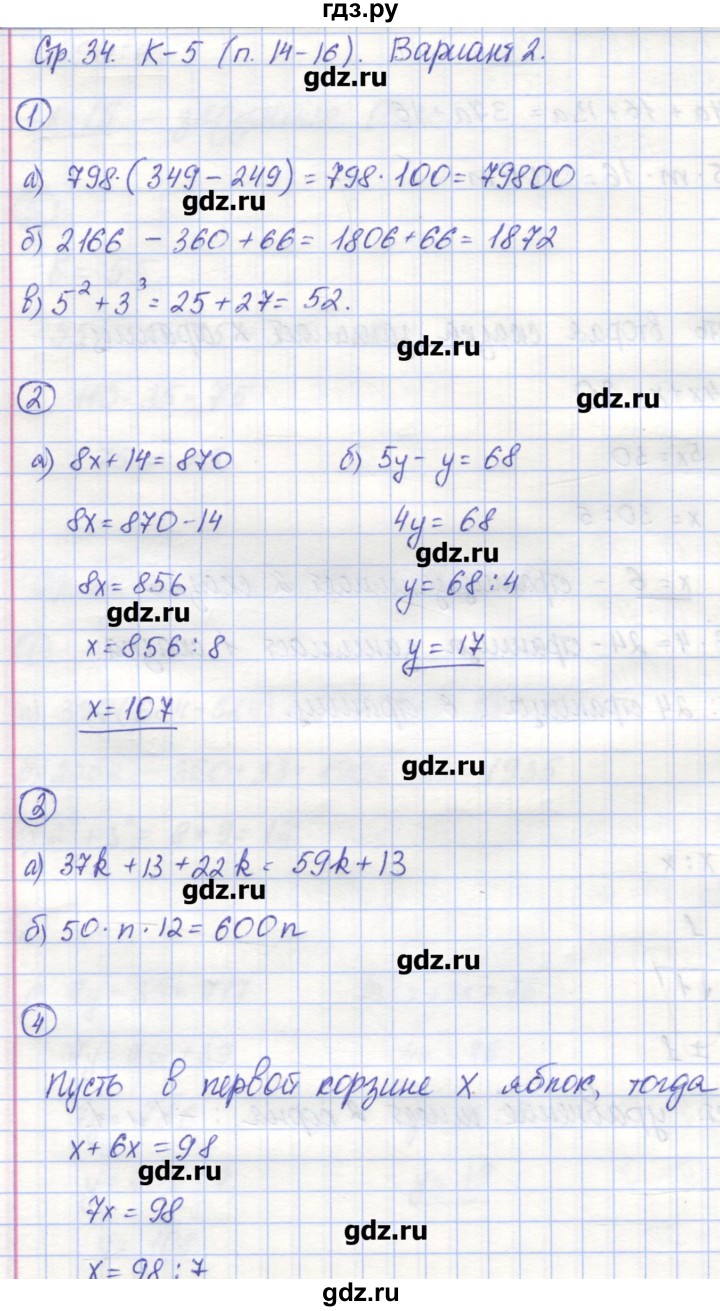 гдз.ру
Стр. 34. К-5 (п. 14-16). Вариант 2.
gdz.ru
1
а) 798·(349-249)=798·100=79800
gdz.ru
б) 2166 - 360 + 66 = 1806+66 = 1872
в) 5² + 3³ = 25 + 27 = 52.
gdz.ru
2
gdz.ru
а) 8x+14=870 б) 5y - y = 68
8x=870-14 4y = 68
gdz.ru
8x=856 y = 68:4
gdz.ru
x=856:8 y=17
x=107
gdz.ru
3
а) 37k +13 +22k = 59k+13
gdz.ru
б) 50·n·12=600n
gdz.ru
4
Пусть в первой корзине x яблок, тогда
x+6x=98
gdz.ru
7x=98
gdz.ru
x=98:7
gdz.ru